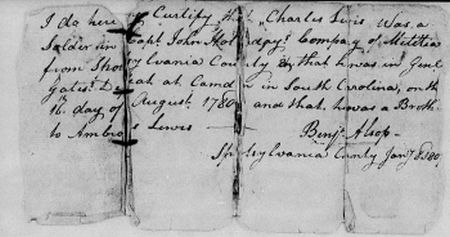 I do here by Curtify that Charles Lewis was a
Solder in Capt. John Holladays Company of Militia
from Spotsylvania County & that he was in Genl
Gates' Defeat at Camden in South Carolina, on the
16th day of August 1780 and that he was a Broth
to Ambros Lewis
Benjn Alsop
Spotsylvania County Jany 8